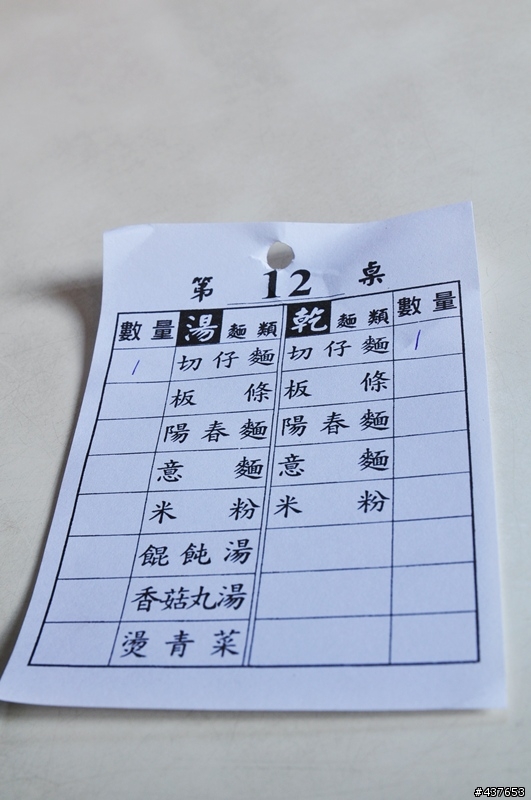 第 12 桌
數量 湯麵類 乾麵類 數量
1 切仔麵 切仔麵 1
板條 板條
陽春麵 陽春麵
意麵 意麵
米粉 米粉
餛飩湯
香菇丸湯
燙青菜
#437653